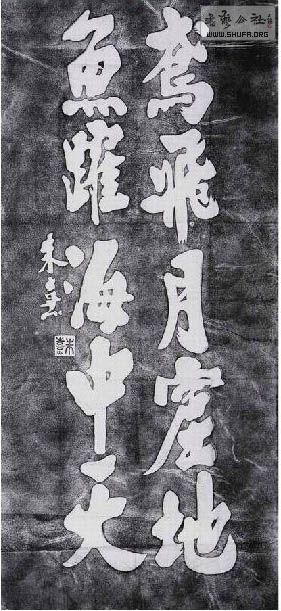 鳶飛月窟地
魚躍海中天
朱熹
書藝公社
WWW.SHUFA.ORG